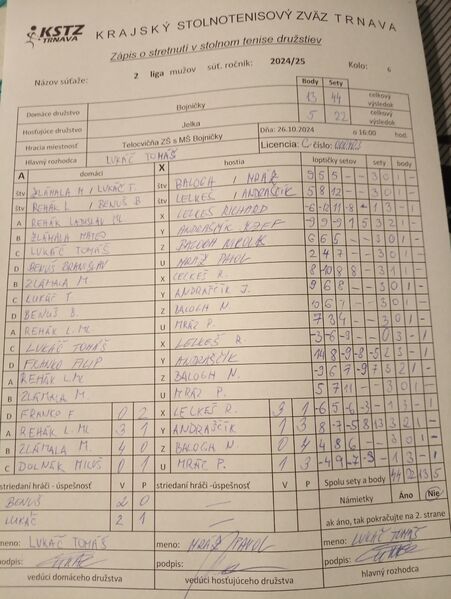 KSTZ TRNAVA KRAJSKÝ STOLNOTENISOVÝ ZVÄZ TRNAVA
Zápis o stretnutí v stolnom tenise družstiev
Názov súťaže: 2 liga mužov súť. ročník: 2024/25 Kolo: 6
Body Sety
Domáce družstvo Bojničky 13 44 celkový výsledok
Hosťujúce družstvo Jelka 5 22 celkový výsledok
Hracia miestnosť Telocvičňa ZŠ s MŠ Bojničky Dňa: 26.10.2024 o 16:00 hod.
Hlavný rozhodca LUKÁČ TOMÁŠ Licencia: C číslo:
A domáci X hostia loptičky setov sety body
štv ZLÁMALA M / LUKÁČ T. štv BALOGH / MRÁZ 9 5 5 - - 3 0 1 -
štv REHÁK L / BENUŠ B štv LELKEŠ / ANDRAŠČÍK 5 8 12 - - 3 0 1 -
A REHÁK LADISLAV ML X LELKEŠ RICHARD
B ZLÁMALA MATEJ Y ANDRAŠČÍK JOZEF
C LUKÁČ TOMÁŠ Z BALOGH 6 6 5 - - 3 0 1 -
D BENUŠ BRANISLAV U MRÁZ PAVOL 2 4 7 - - 3 0 1 -
B ZLÁMALA M. X LELKEŠ R. 8 10 8 8 - 3 1 1 -
C LUKÁČ T. Y ANDRAŠČÍK J. 9 6 8 - - 3 0 1 -
D BENUŠ B. Z BALOGH N. 10 6 7 - - 3 0 1 -
A REHÁK L. ML U MRÁZ P. 7 3 4 - - 3 0 1 -
C LUKÁČ TOMÁŠ X LELKEŠ R. -3 -6 -9 - - 0 3 - 1
D FRANKO FILIP Y ANDRAŠČÍK
A REHÁK L. ML Z BALOGH N.
B ZLÁMALA M. U MRÁZ P. 5 7 11 - - 3 0 1 -
D FRANKO F 0 2 X LELKEŠ R.
A REHÁK L. ML 3 1 Y ANDRAŠČÍK 1 3 8 -7 -5 8 13 3 2 1 -
B ZLÁMALA M. 4 0 Z BALOGH N 0 4 4 8 6 - - 3 0 1 -
C DOLNÁK MILOŠ 0 1 U MRÁZ P. 1 3 -4 9 -7 -9 - 1 3 - 1
striedaní hráči - úspešnosť V P striedaní hráči - úspešnosť V P Spolu sety a body 44 22 13 5
BENUŠ 2 0 — Námietky Áno Nie
LUKÁČ 2 1 — ak áno, tak pokračujte na 2. strane
meno: LUKÁČ TOMÁŠ meno: MRÁZ PAVOL meno: LUKÁČ TOMÁŠ
podpis: podpis: podpis:
vedúci domáceho družstva vedúci hosťujúceho družstva hlavný rozhodca